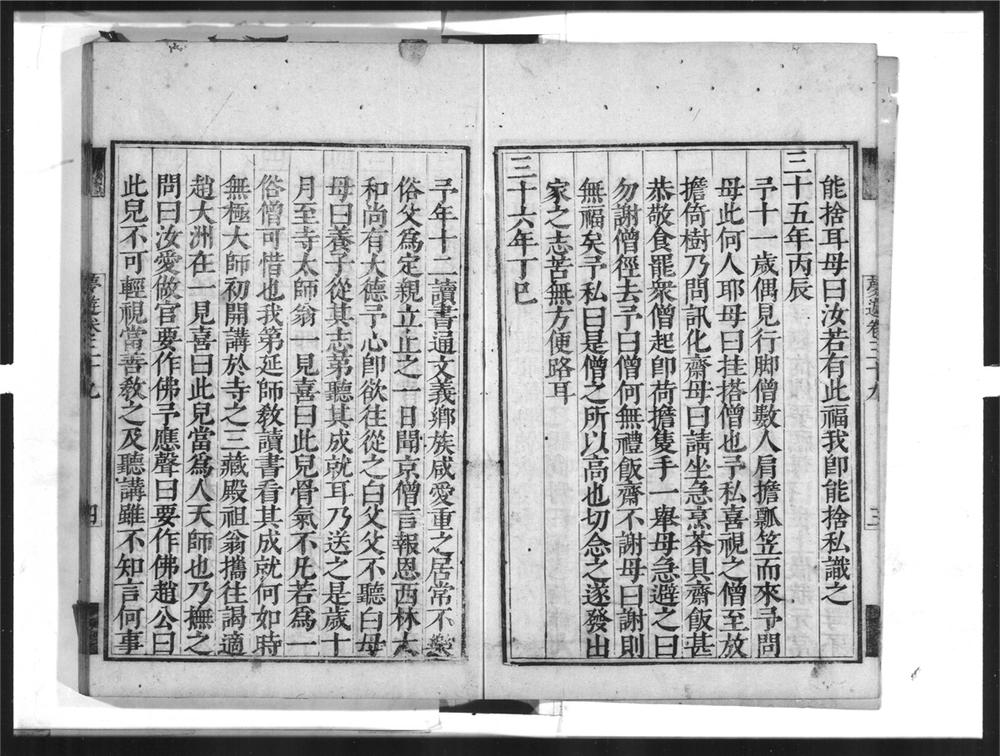 能捨耳母曰汝若有此福我卽能捨私識之
三十五年丙辰
予十一歲偶見行脚僧數人肩擔瓢笠而來予問
母此何人耶母曰挂搭僧也予私喜視之僧至放
擔倚樹乃問訊化齋母曰請坐急烹茶具齋飯甚
恭敬食罷衆僧起卽荷擔隻手一舉母急避之曰
勿謝僧徑去予曰僧何無禮飯齋不謝母曰謝則
無福矣予私曰是僧之所以高也切念之遂發出
家之志苦無方便路耳
三十六年丁巳
夢遊卷三十九
三
予年十二讀書通文義鄉族咸愛重之居常不樂
俗父爲定親立止之一日聞京僧言報恩西林大
和尚有大德予心卽欲往從之白父父不聽白母
母曰養子從其志第聽其成就耳乃送之是歲十
月至寺太師翁一見喜曰此兒骨氣不凡若爲一
俗僧可惜也我第延師教讀書看其成就何如時
無極大師初開講於寺之三藏殿祖翁攜往謁適
趙大洲在一見喜曰此兒當爲人天師也乃撫之
問曰汝愛做官要作佛予應聲曰要作佛趙公曰
此兒不可輕視當善教之及聽講雖不知言何事
夢遊卷三十九
四